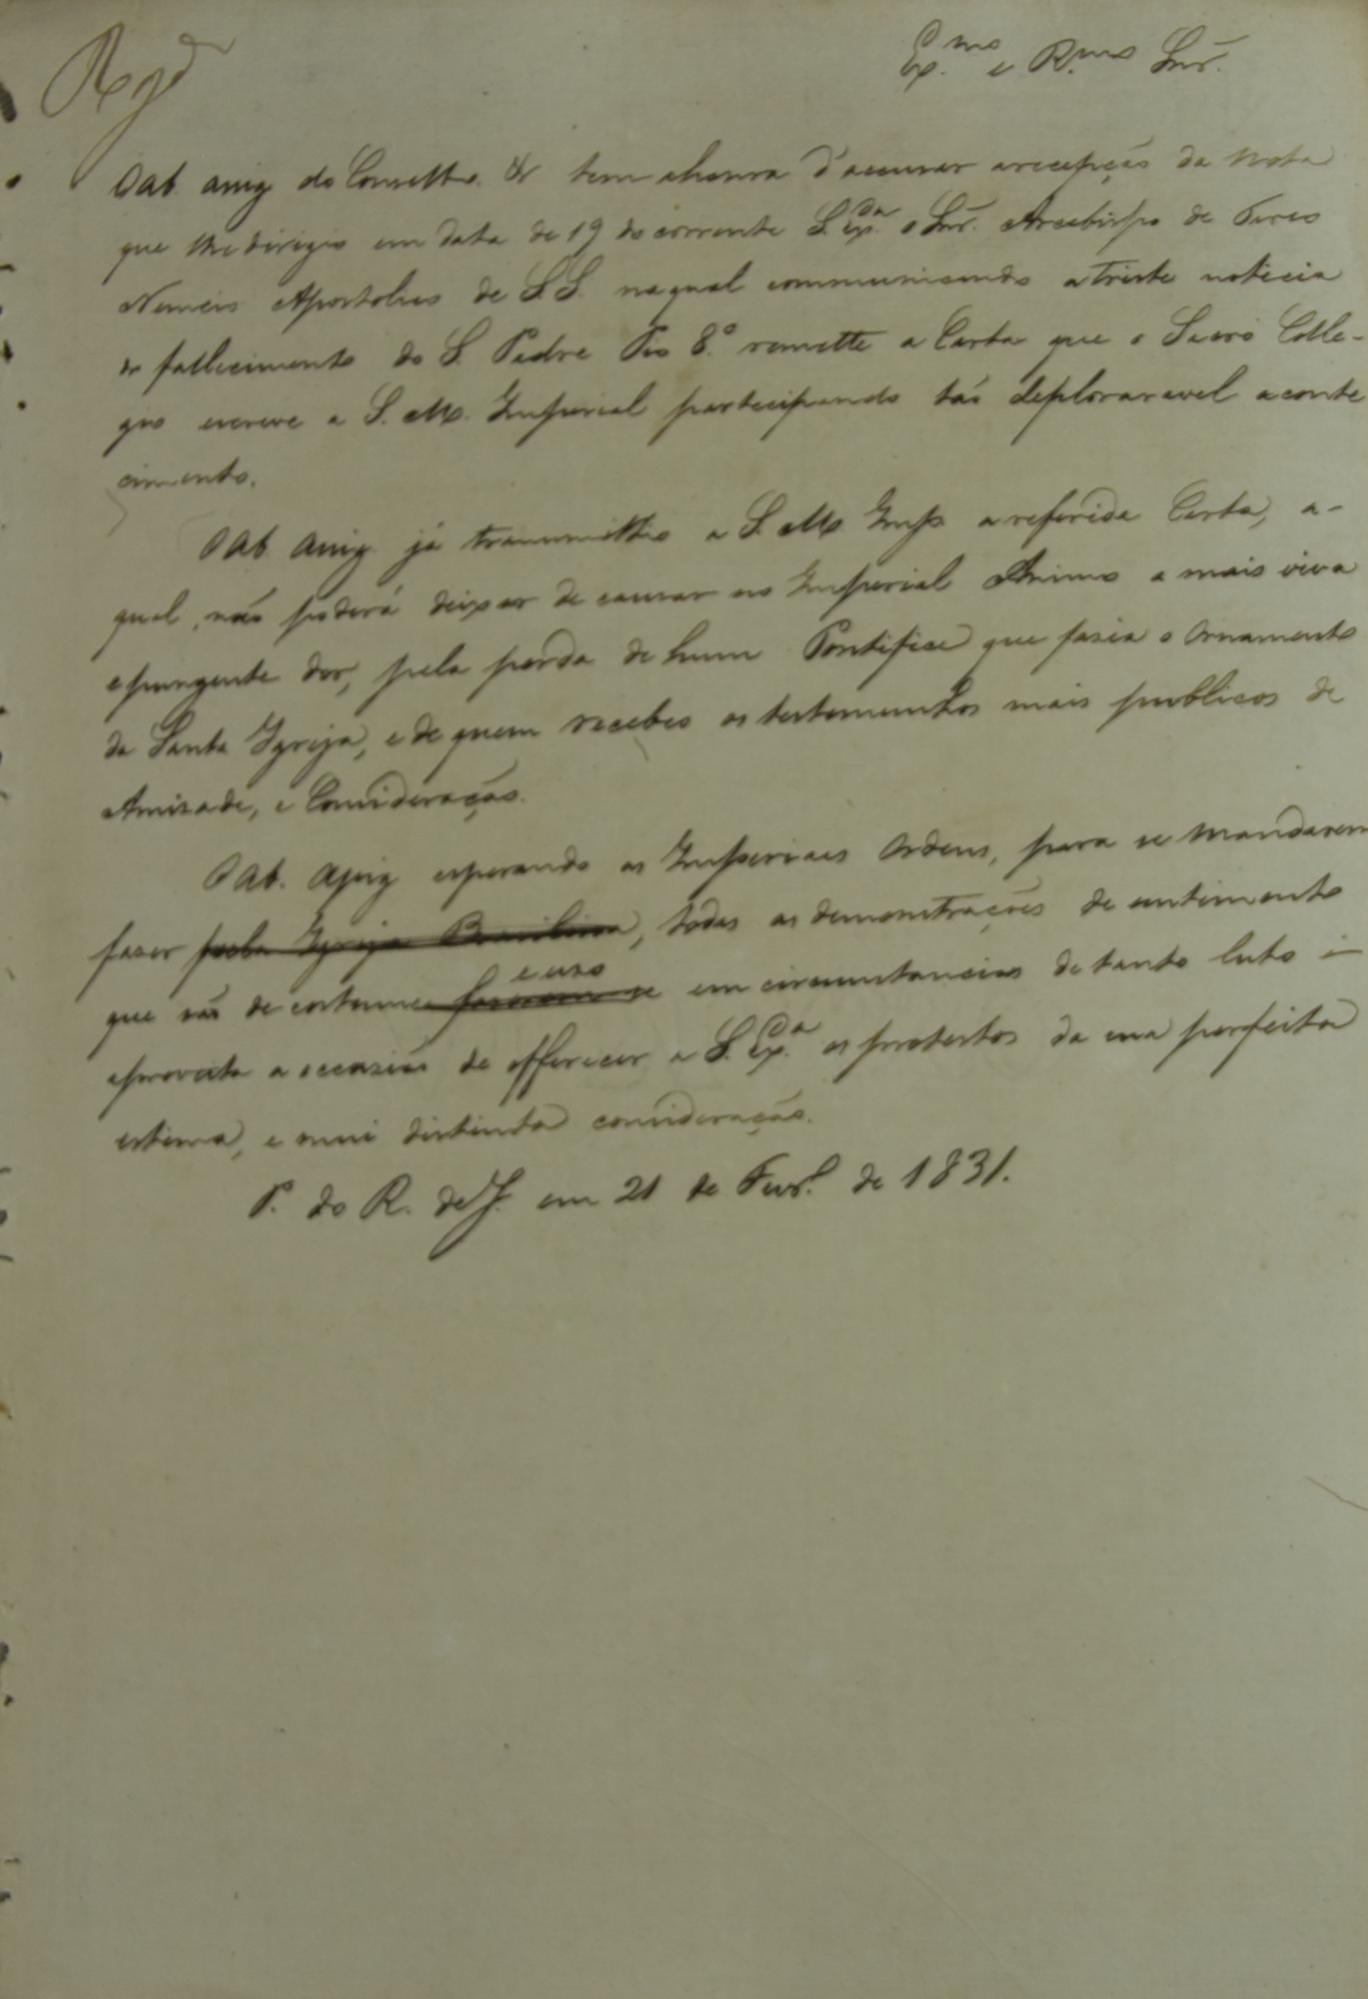 Regd
Ex.mo e R.mo Snr.
O ab. assig do Conselho &r tem ahonra d'accusar arecepção da Nota
que lhe dirigio em data de 19 do corrente S. Ex.cia o Snr. Arcebispo de Tarso
Nuncio Apostolico de S. S. naqual communicando a triste noticia
do fallecimento do S. Padre Pio 8.º remette a Carta que o Sacro Colle-
gio escreve a S. M. Imperial participando tão deploraravel aconte
cimento.
O ab assig. já transmittio a S. M. Imp. a referida Carta, a-
qual, não poderá deixar de causar ao Imperial Animo a mais viva
epungente dor, pela perda de hum Pontifice que fazia o Ornamento
da Santa Igreja, e de quem recebeo os testemunhos mais publicos de
Amizade, e Consideração.
O ab. assig esperando as Imperiaes Ordens, para se mandarem
fazer pela Igreja Brasileira, todas as demonstrações de sentimento
e uso
que são de costume fazerem-se em circunstancias de tanto luto
aproveita a occasião de offerecer a S. Ex.cia os protestos da sua perfeita
estima, e mui distincta consideração.
P. do R. de J. em 21 de Fevr.º de 1831.